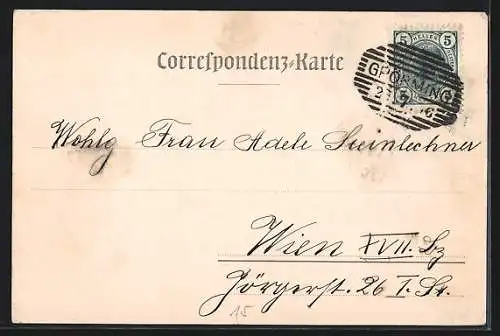 5 HELLER 5
Correspondenz-Karte
GPÖRNING
Wohlg Frau Adele Steinlechner
Wien XVII. Bz
Jörgerst. 26 I. St.
15